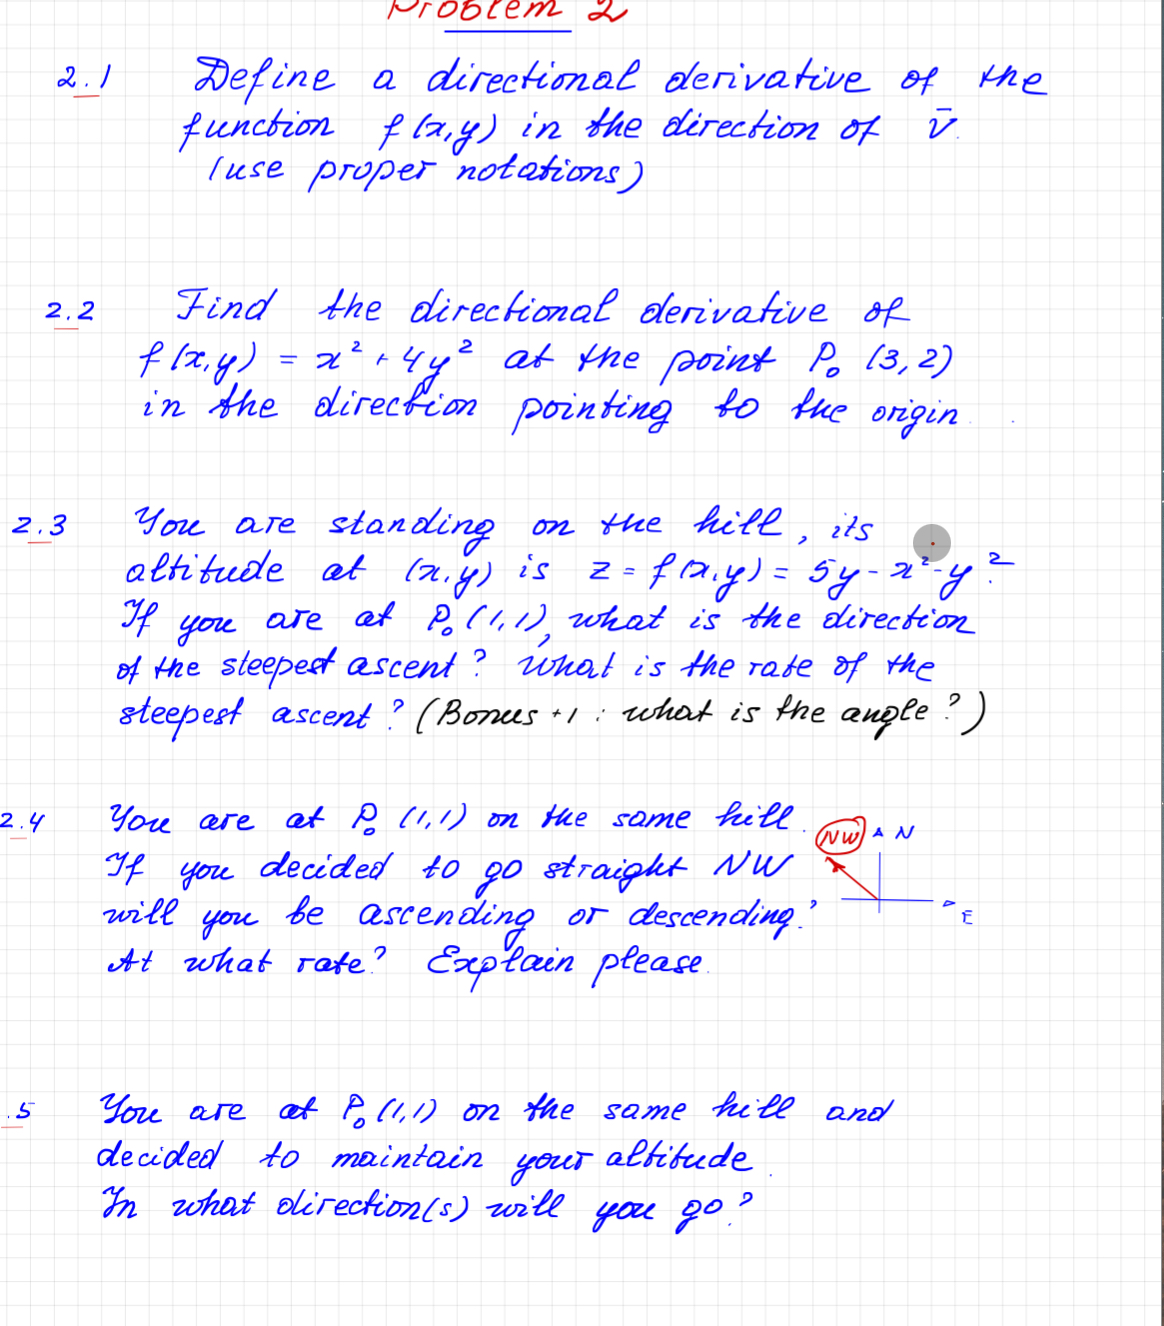 Problem 2
2.1 Define a directional derivative of the
function f(x,y) in the direction of v̄.
(use proper notations)
2.2 Find the directional derivative of
f(x,y) = x² + 4y² at the point P₀ (3,2)
in the direction pointing to the origin.
2.3 You are standing on the hill, its
altitude at (x,y) is z = f(x,y) = 5y - x² - y².
If you are at P₀(1,1), what is the direction
of the steepest ascent? What is the rate of the
steepest ascent? (Bonus +1 : what is the angle?)
2.4 You are at P₀ (1,1) on the same hill.
NW N
If you decided to go straight NW
will you be ascending or descending?
E
At what rate? Explain please.
.5 You are at P₀(1,1) on the same hill and
decided to maintain your altitude.
In what direction(s) will you go?